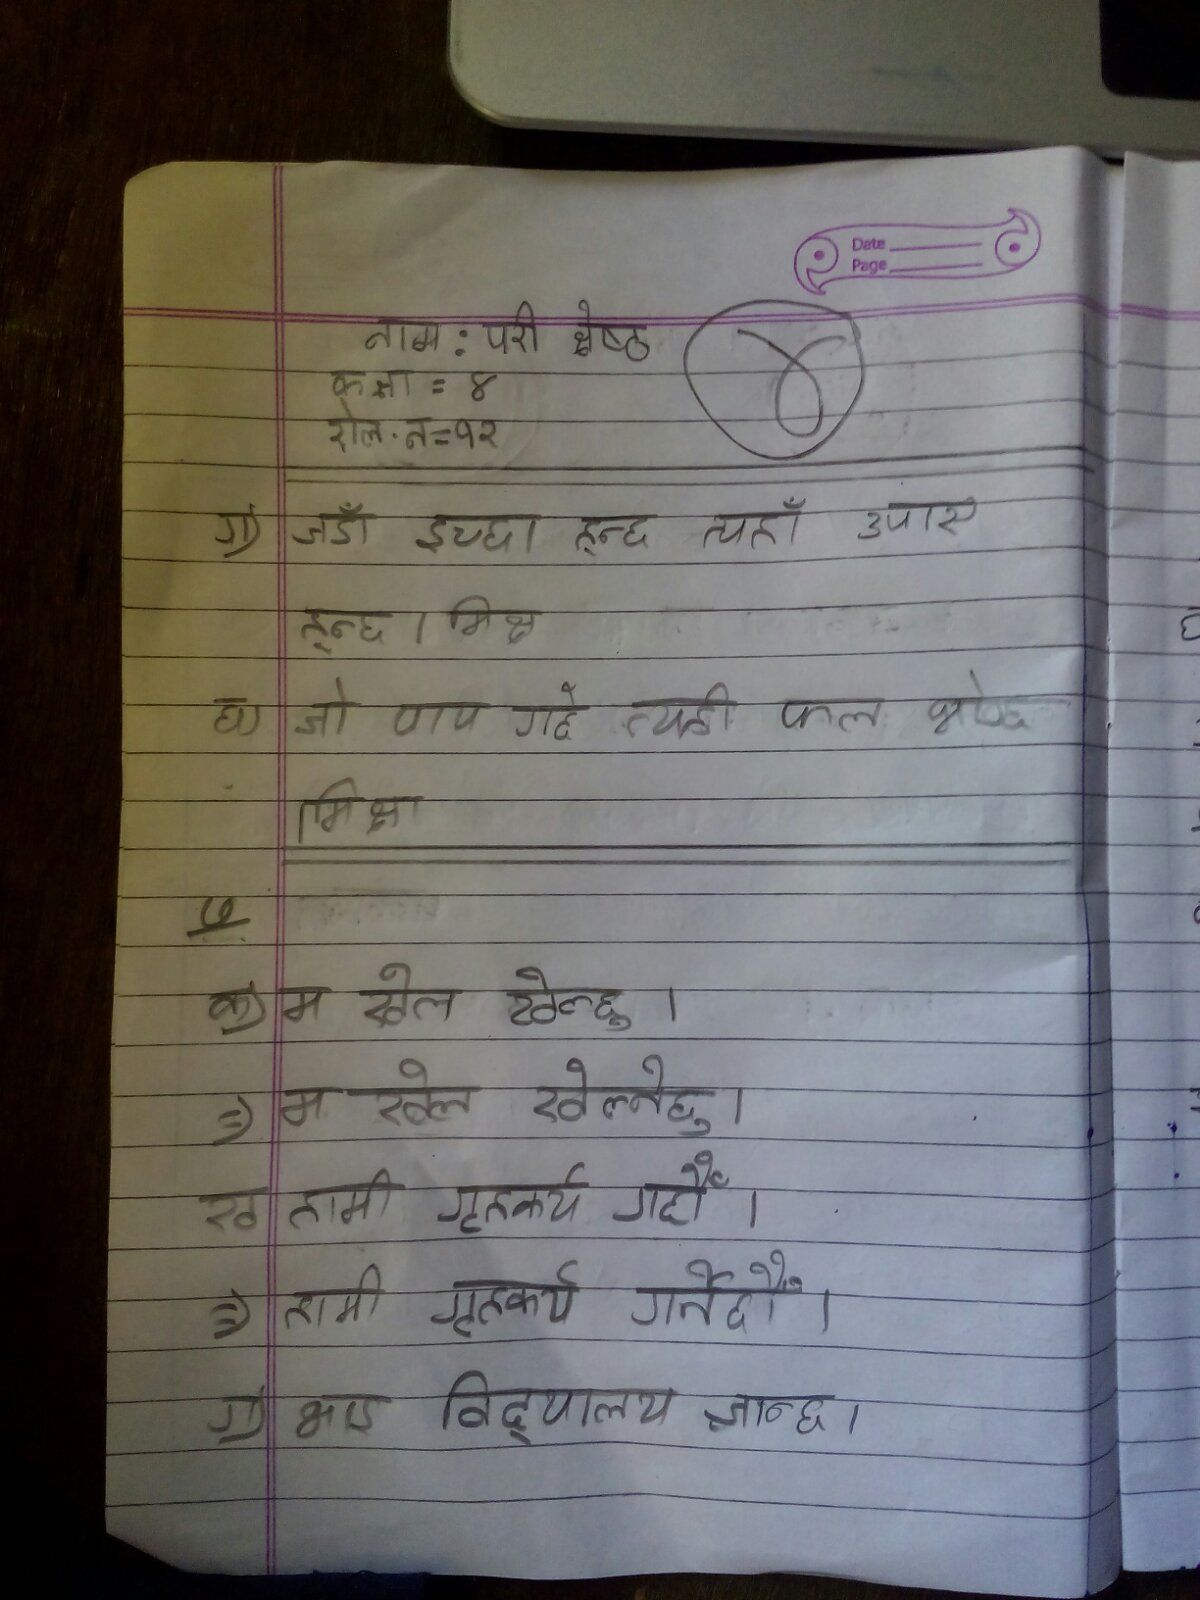 Date
Page
नाम : परी श्रेष्ठ
कक्षा = ४
रोल. न = १२
ग) जहाँ इच्छा हुन्छ त्यहाँ उपाए
हुन्छ । मिश्र
घ) जो पाप गर्छ त्यही फल भोग्छ
। मिश्र
५
क) म खेल खेल्छु ।
⇒ म खेल खेल्नेछु ।
ख हामी गृहकर्य गर्छौँ ।
⇒ हामी गृहकर्य गर्नेछौँ ।
ग) भाइ विद्यालय जान्छ ।